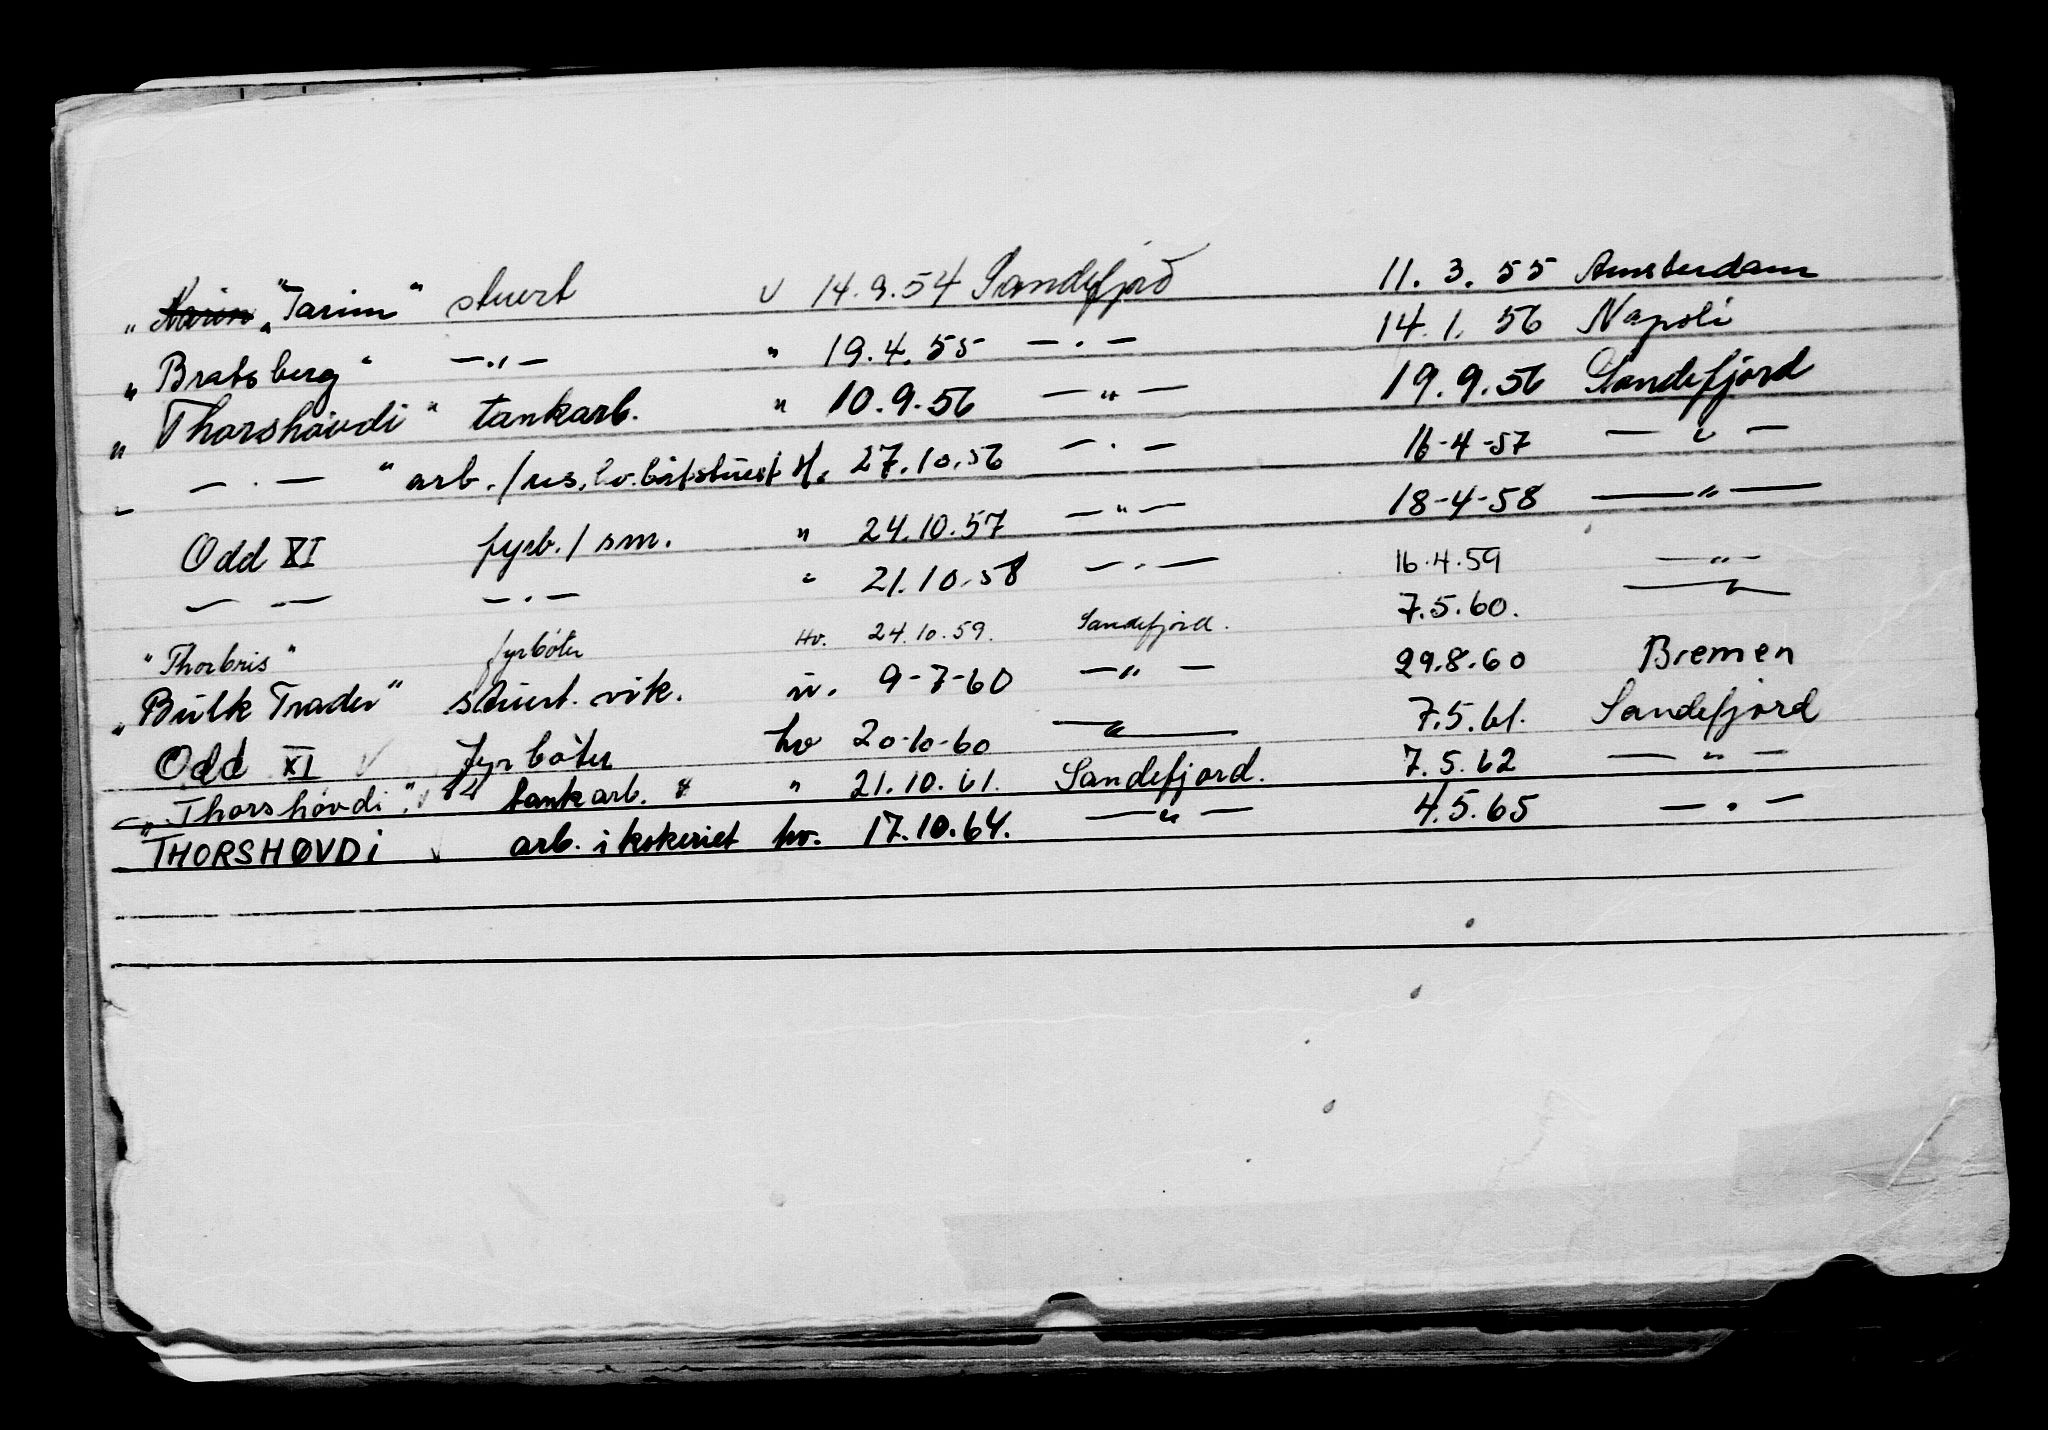 " ~~Karin~~ "Tarim" stuert v 14.9.54 Sandefjord 11.3.55 Amsterdam
" Bratsberg" —"— " 19.4.55 —"— 14.1.56 Napoli
" Thorshøvdi" tankarb. " 10.9.56 —"— 19.9.56 Sandefjord
" —"— " arb./ us. lv. båtstuert H. 27.10.56 —"— 16-4-57 —"—
Odd XI fyrb./ sm. " 24.10.57 —"— 18-4-58 —"—
—"— —"— " 21.10.58 —"— 16.4.59 —"—
"Thorbris" fyrbøter Hv. 24.10.59. Sandefjord. 7.5.60. —"—
"Bulk Trader" stuert. vik. u. 9-7-60 —"— 29.8.60 Bremen
Odd XI v fyrbøter hv 20-10-60 —"— 7.5.61. Sandefjord
"Thorshøvdi". v tankarb. " 21.10.61. Sandefjord. 7.5.62 —"—
"THORSHØVDi v arb. i kokeriet hv. 17.10.64. —"— 4.5.65 —"—